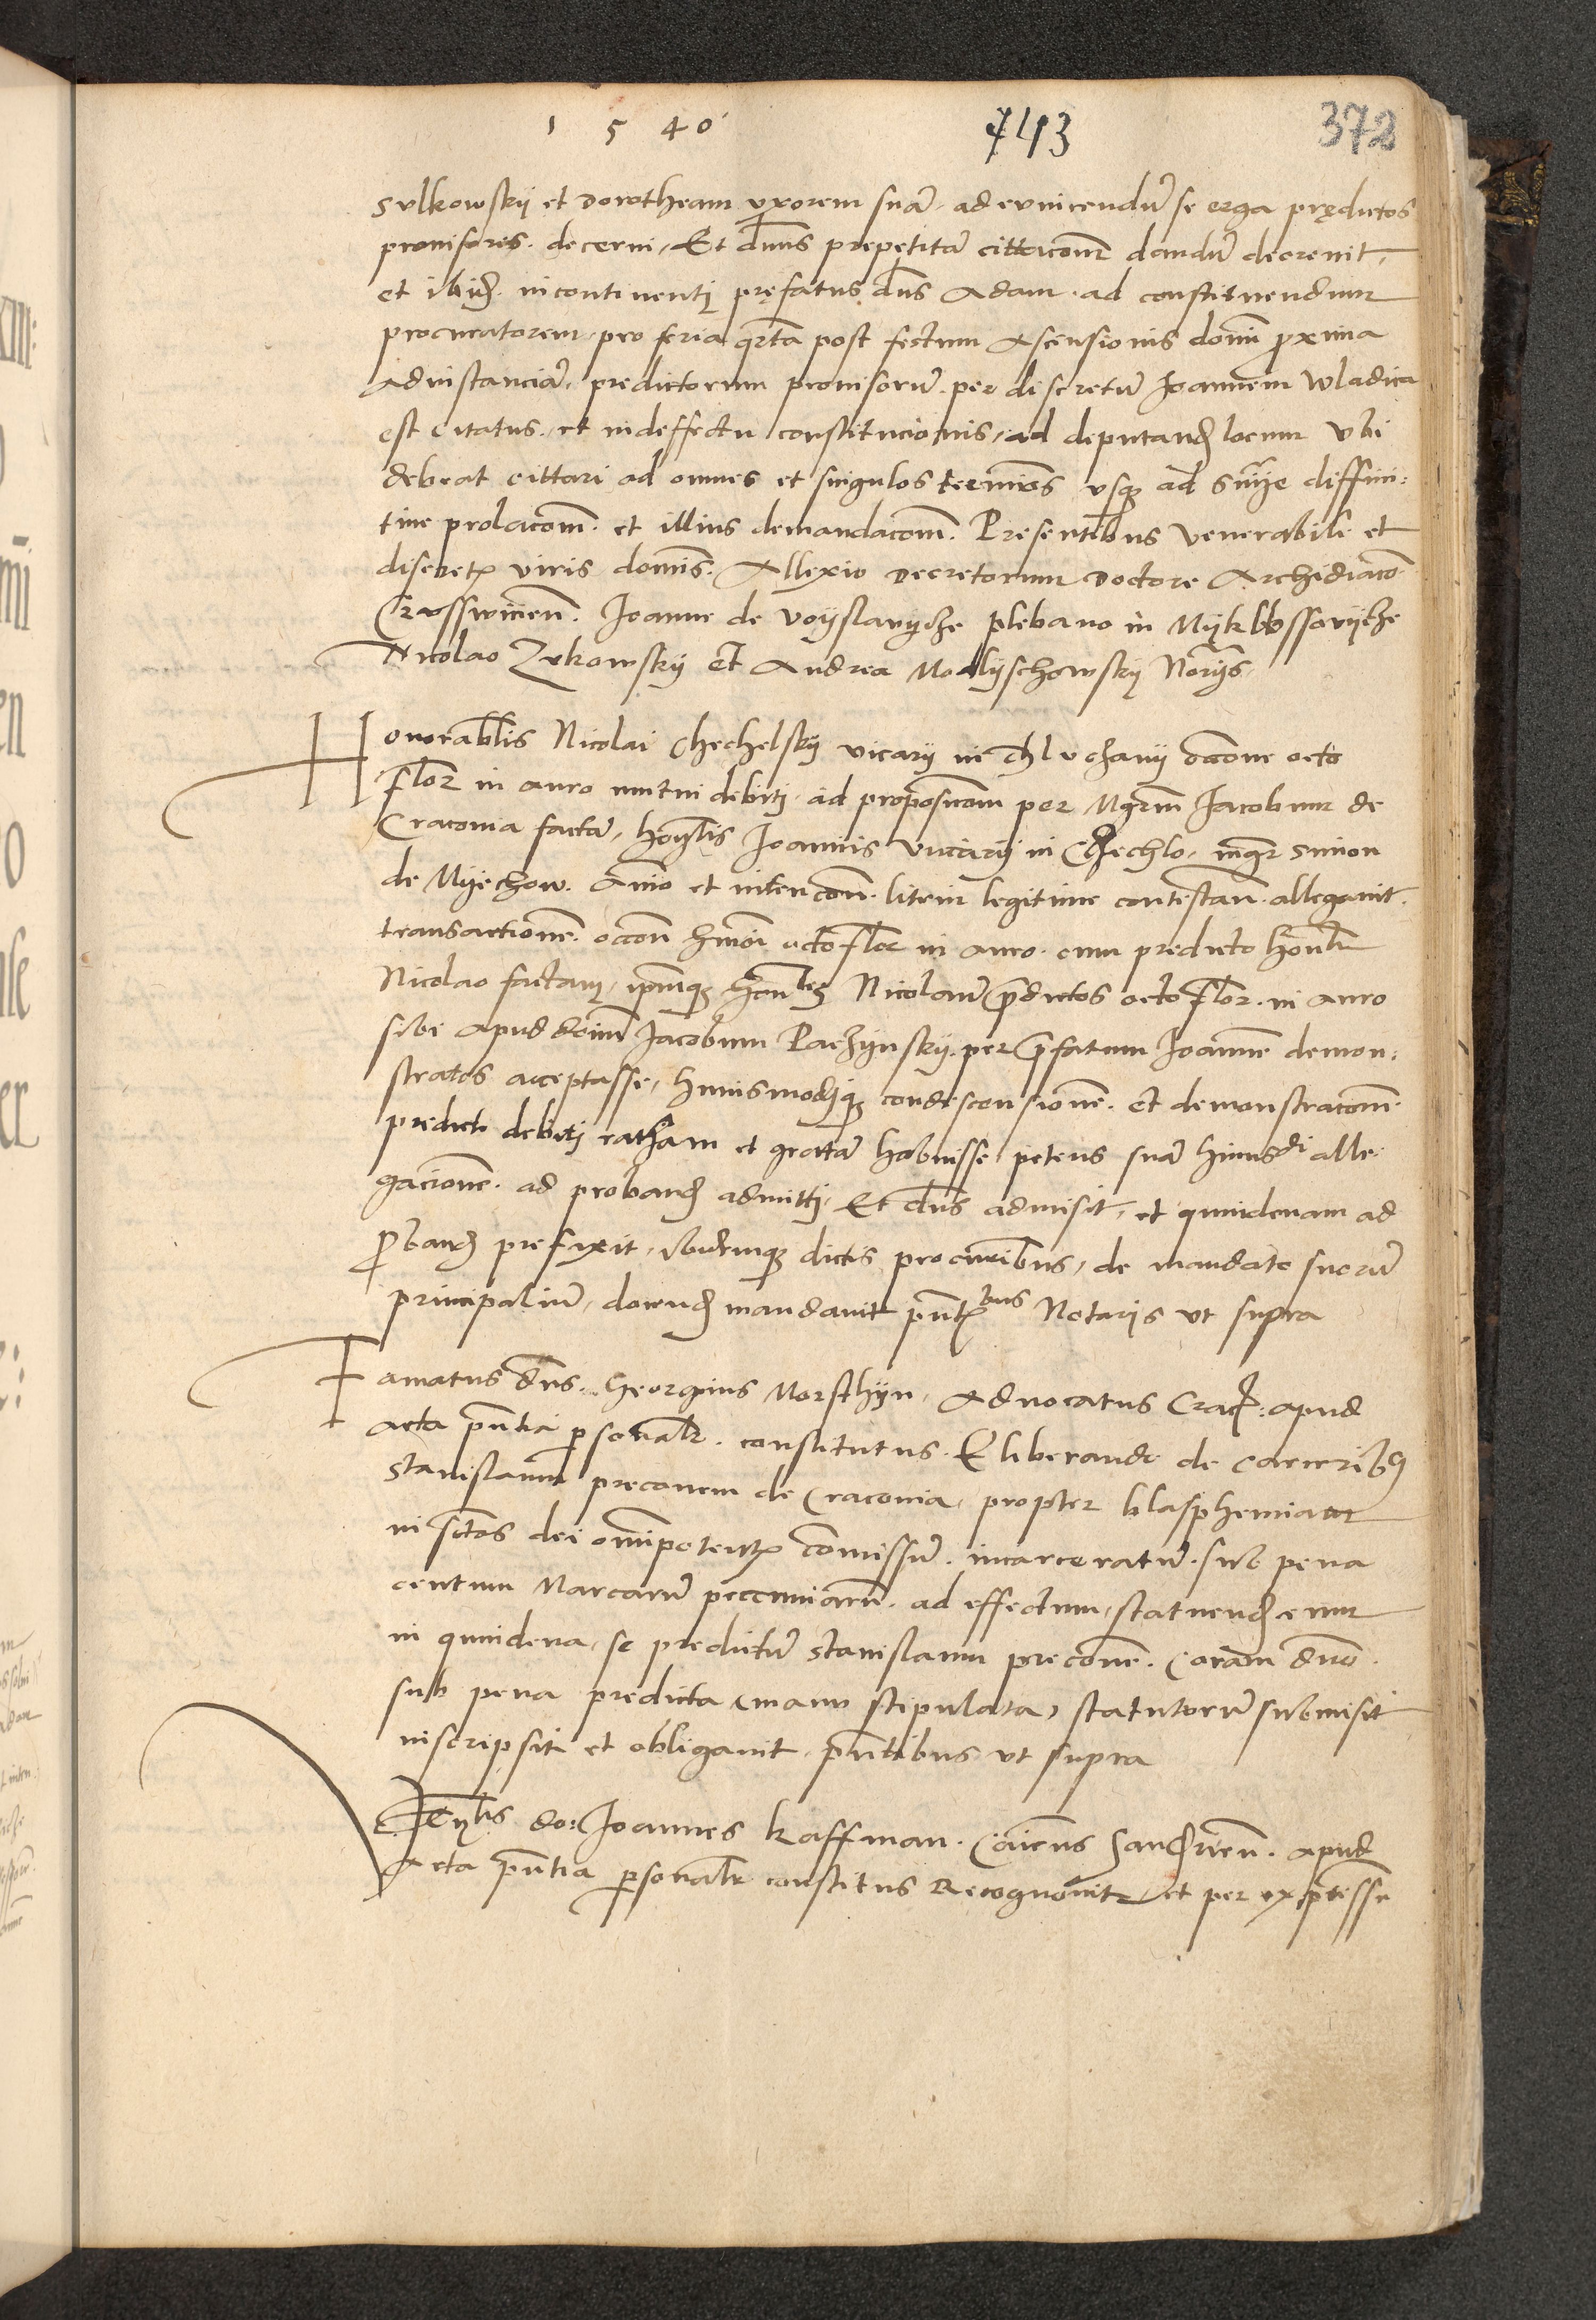 1540
743
372
Sulkowskÿ et Dorotheam vxorem suā. ad euincendū se erga prędictos
prouisores. decerni. Et dn̄us prepetitā cittacōnē dandū decreuit,
et ibid. incontinenti pręfatus dn̄s Adam. ad constituendum
procuratorem, pro feria qrta post festum Ascensionis domī proxima
Ad instanciā. predictorum prouisorū. per discretū Joannem Wladica
est citatus. et in deffectu constitucionis, ad deputand locum vbi
debeat cittari ad omnes et singulos terminos vsq ad sn̄ie diffini:
tiue prolacōm. et illius demandacōm. Presentibus venerabile et
discret viris dominis. Allexio Decretorum Doctore Archidiacō
Crusswicien. Joanne de Voÿslawÿcze plebano in
Nicolao Zukowskÿ et Andrea Modlÿschowskÿ Norÿs.
Honorabilis Nicolai Chechelskÿ vicarÿ in occōne octo
Flor in auro mutui debiti. ad proposicōm per Mgrm Jacobum de
Cracouia factā, honōlis Joannis vicarÿ in Chechlo. mgr Simon
de Mÿechow. Animo et intencōn. litem legitime contestan. allegauit.
transactionem. occōn hmōi octo flor in auro. cum predicto honōli
Nicolao factam, ipsumq honōlem Nicolaum p̄dictos octo Flor. in auro
sibi apud dnm Jacobum Paczÿnskÿ. per p̄fatum Joannē demon:
stratos acceptasse, huiusmodiq condescensionē. et demonstracōnē.
predicti debiti ratham et gratā habuisse, petens suā huiusdi alle
gacionē. ad proband admitti, Et dn̄s admisit, et quindenam ad
proband prefixit, ibidemq dictis procuribus, de mandato suorū
principaliū, docend mandauit pn̄tibus Notarÿs vt supra
Famatus dn̄s. Georgius Morsthÿn, Aduocatus Crac: apud
acta pn̄tia personalr. constitutus. Eliberando de carcerib9
Stanislaum preconem de Cracouia, propter blasphemiam
in sctos dei omnipotent commissū. incarceratū. sub pena
centum Marcarū peccuniarū. ad effectum, statuend eum
in quindena, se predictū Stanislaum preconē. coram dn̄o.
sub pena predicta (manu stipulata) statuterū submisit
inscripsit et obligauit. pn̄tibus vt supra
do: Joannes Kaffman. Caien̄s Sandmien. apud
Acta pn̄tia personalr constitus Recognouit et per expresse